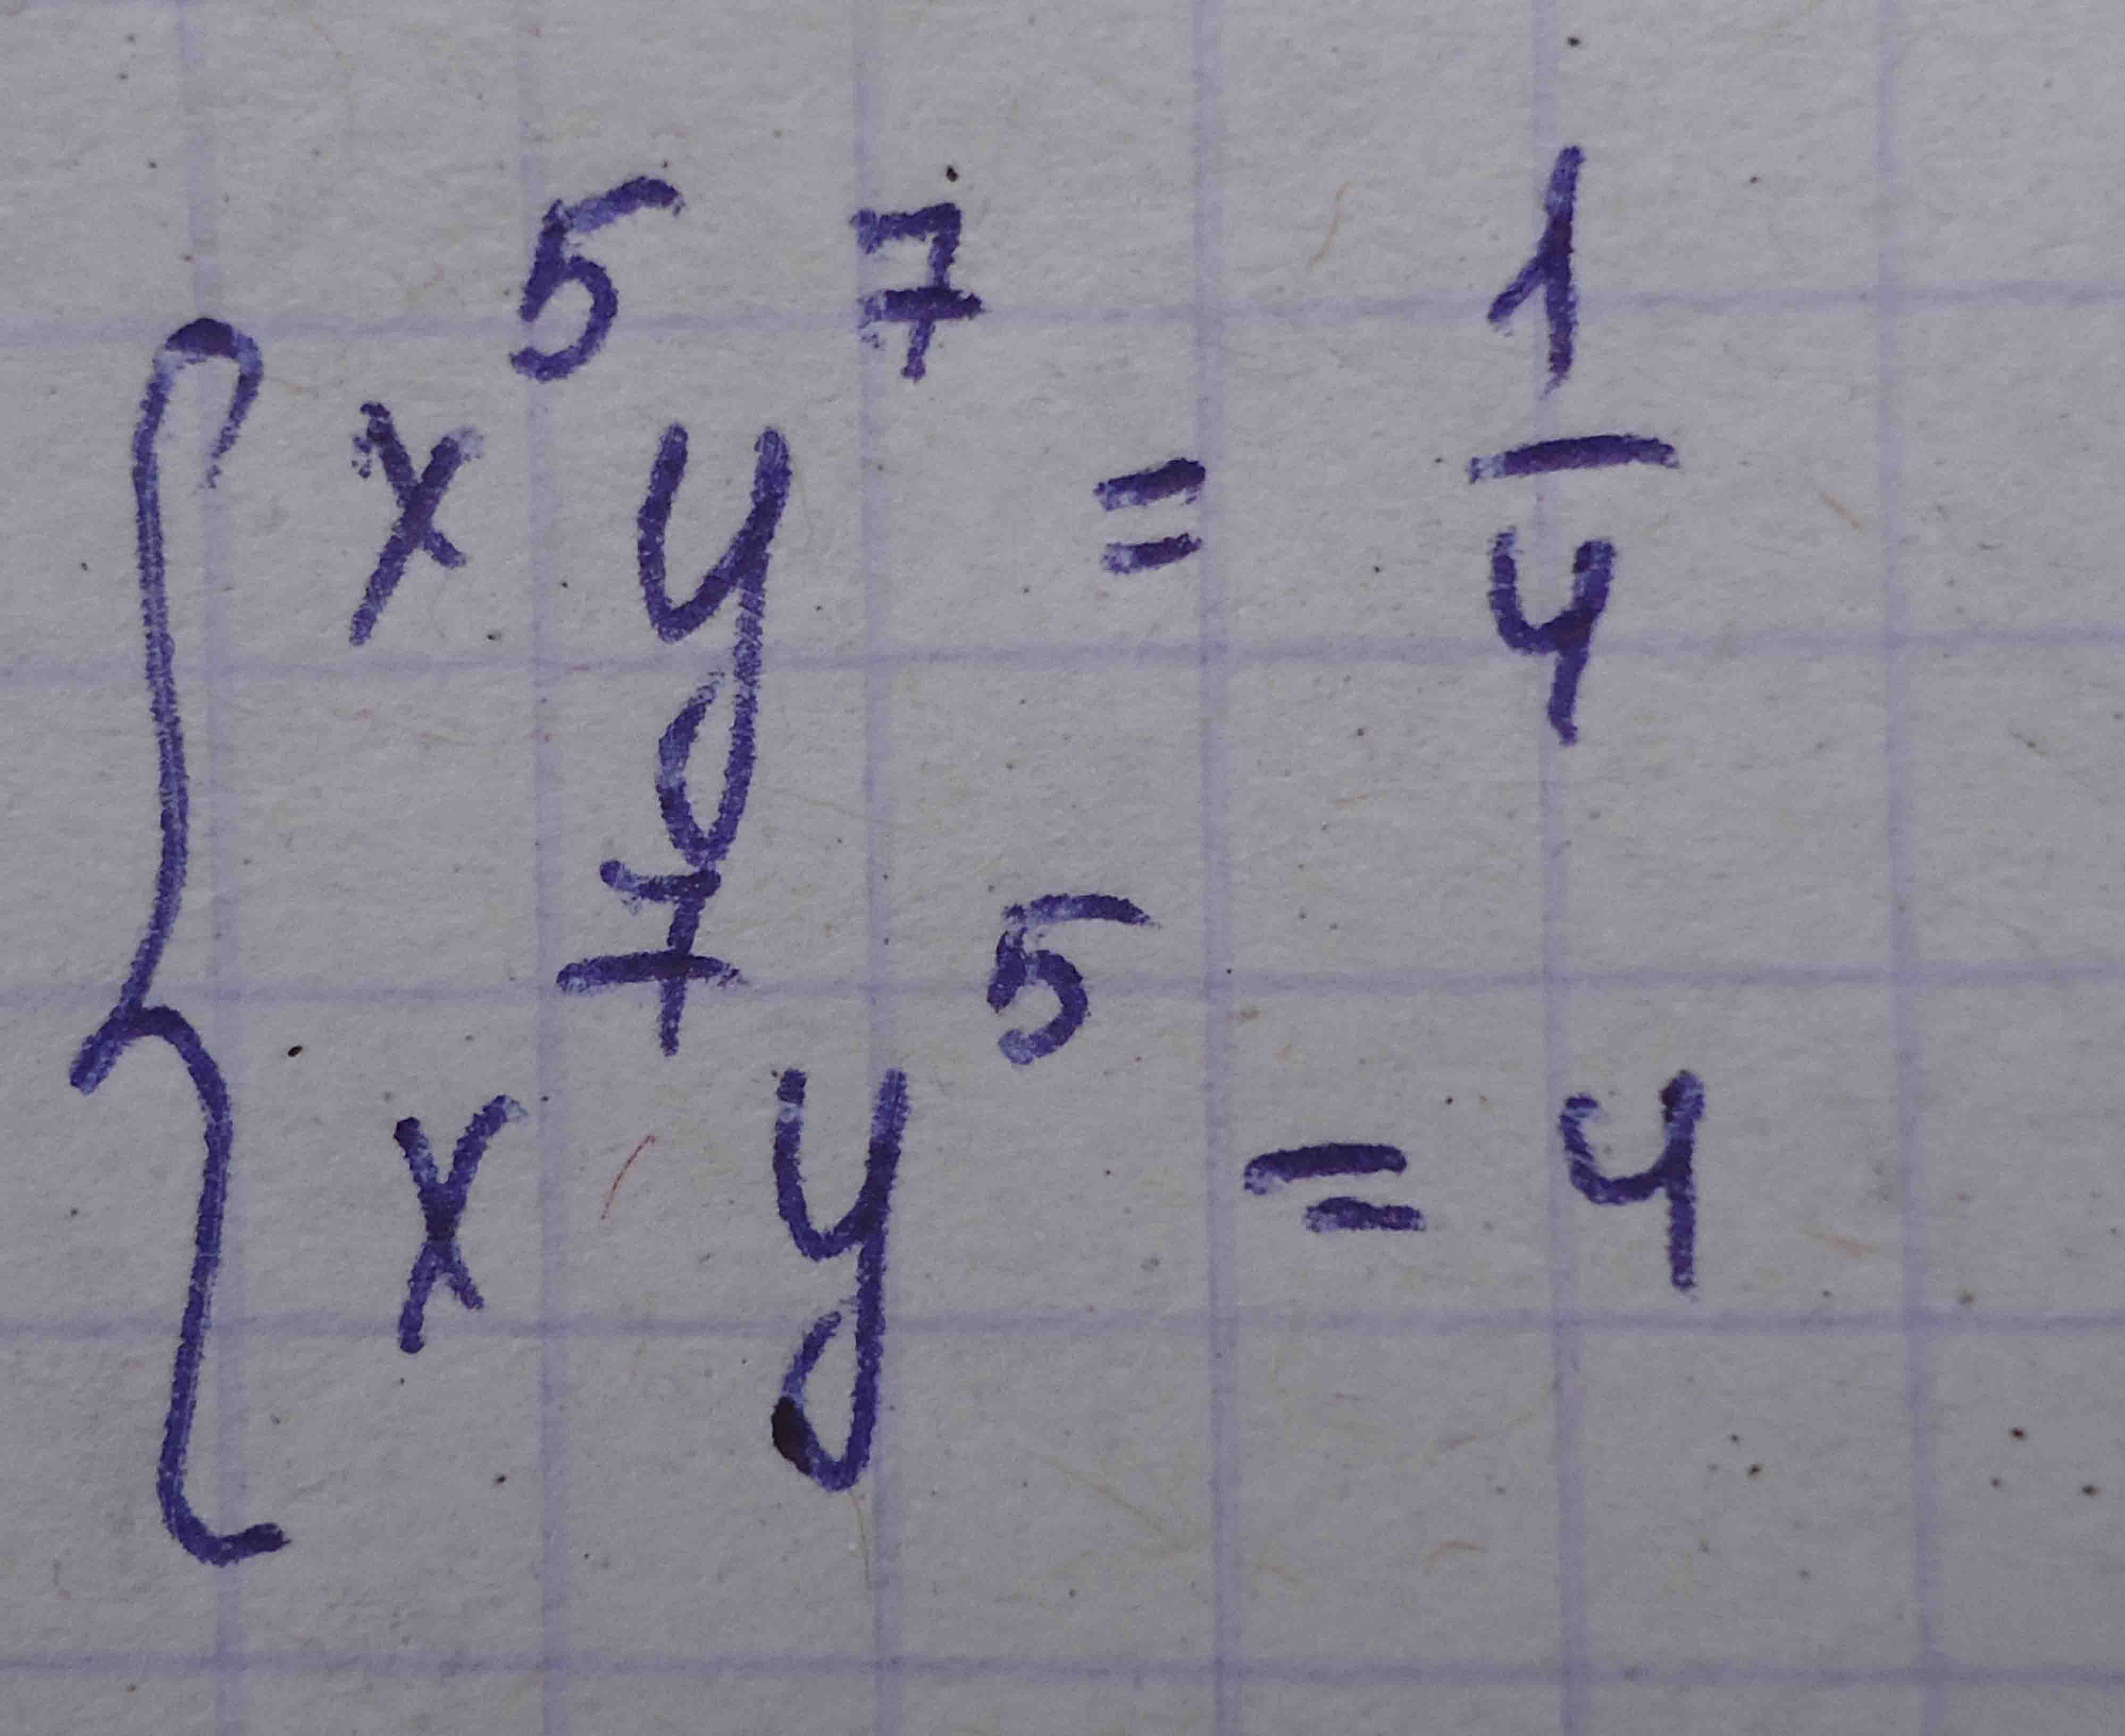 { x⁵ y⁷ = 1/4
x⁷ y⁵ = 4